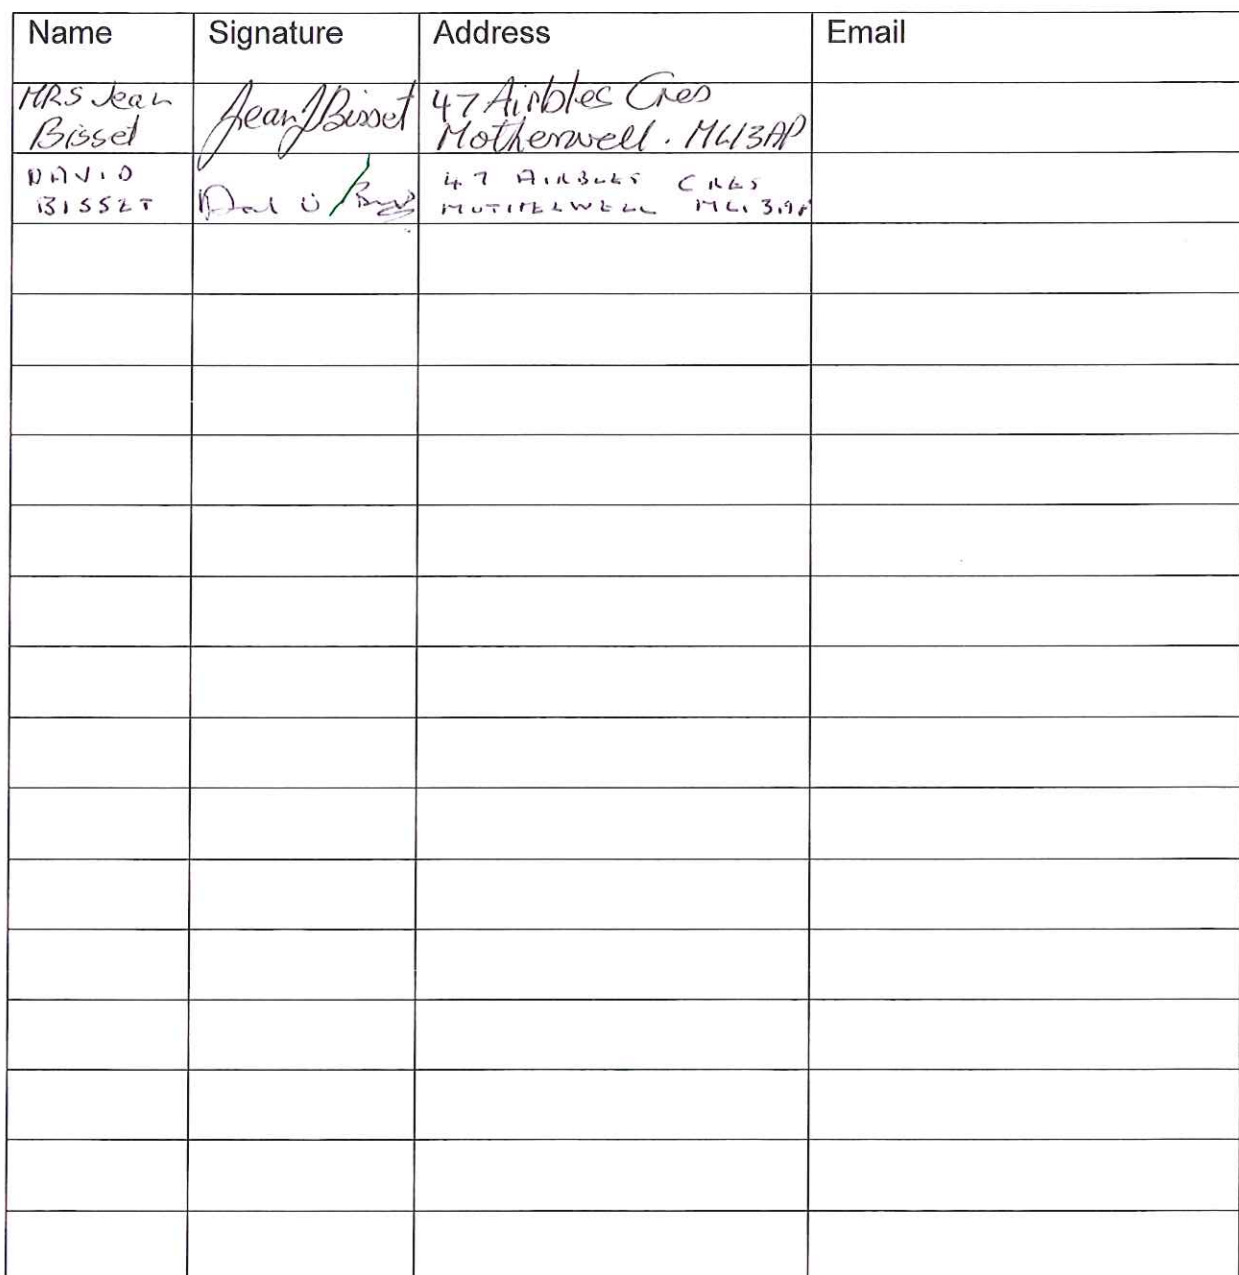 Name Signature Address Email
MRS Jean
Bisset
Jean J Bisset
47 Airbles Cres
Motherwell. ML13AP
DAVID
BISSET
47 AIRBLES CRES
MOTHERWELL ML1 3AP